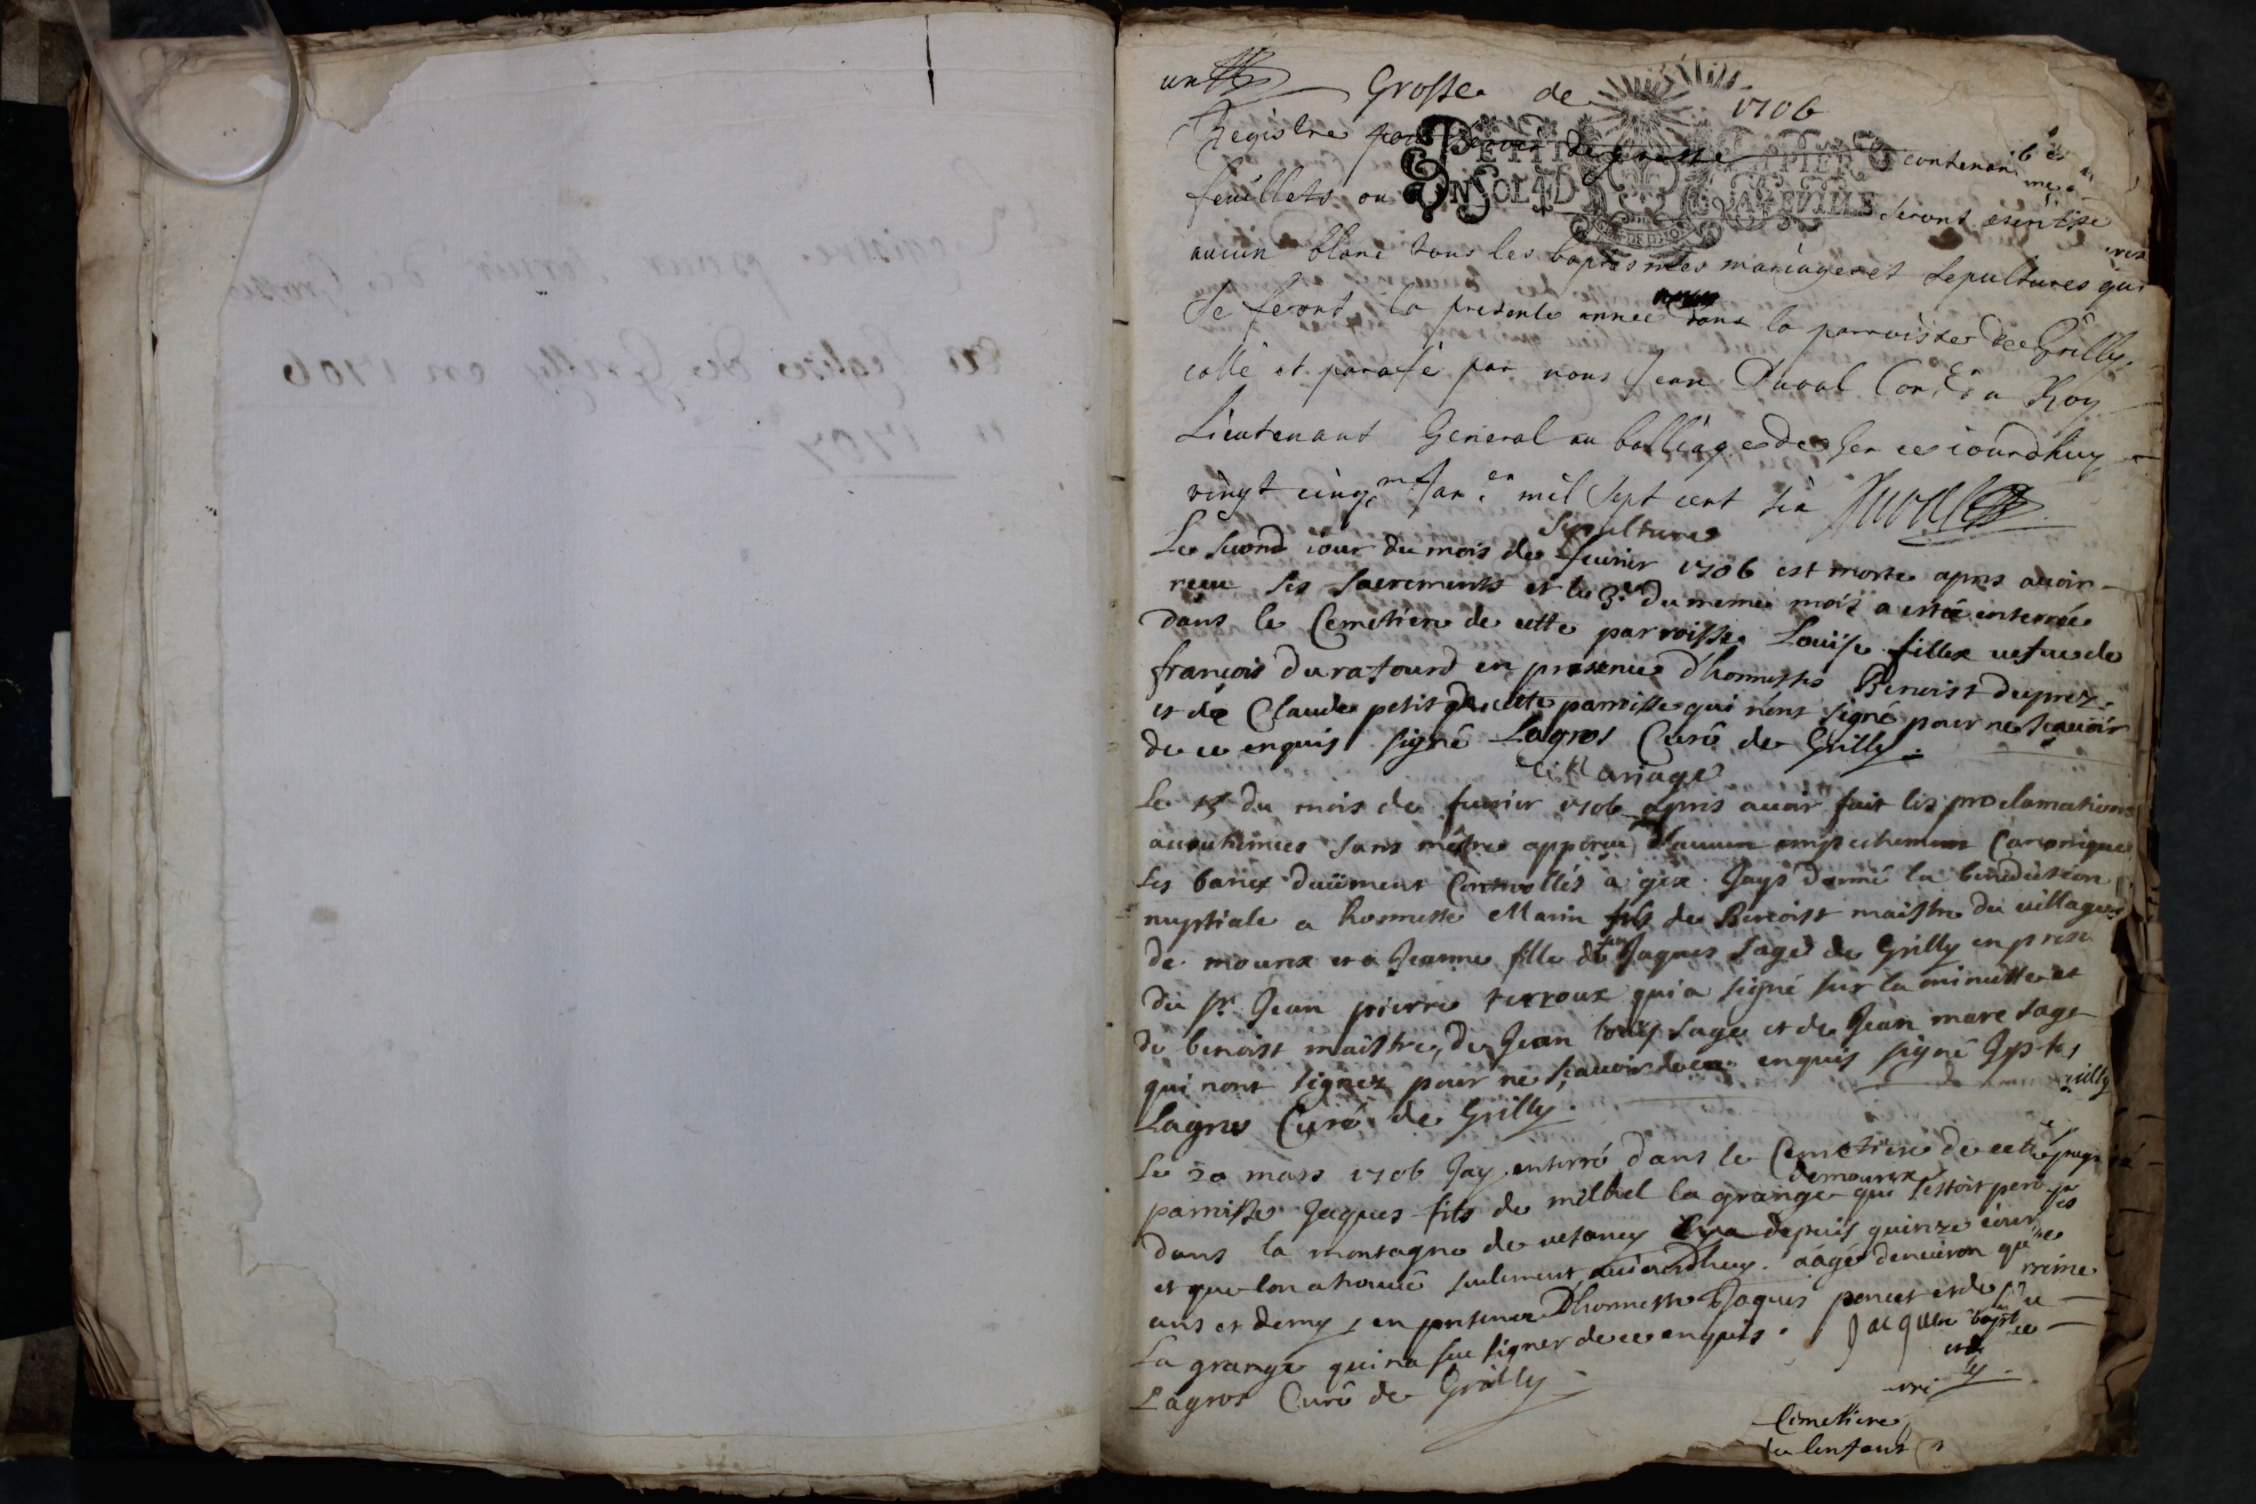 un Grosse de 1706
Registre pour servir de grosse contenant
feuillets ou seront escrits
PETIT PAPIER
UN SOL 4 D LA FEUILLE
aucun blanc tous les baptesmes mariages et sepultures qui
se feront la presente année dans la parroisse de Grilly
cotté et parafé par nous Jean Duval Con.er du Roy
Lieutenant General au balliage de Gex ce iourdhuy
vingt cinq.me Jan.er mil sept cent six Duval
Sepulture
Le second iour du mois de feurier 1706 est morte apres auoir
receu les sacrements et le 3.e du meme mois a esté enterrée
dans le Cemetiere de cette parroisse Louïse fillex uefue de
françois duratourd en presence d'honnestes Benoist duprez
et de Claude petit de cette parroisse qui nont signé pour ne scauoir
de ce enquis signé Lagros Curé de Grilly
Mariage
Le 15 du mois de feurier 1706 apres auoir fait les proclamations
accoutumées sans mestre apperceu d'aucun empechement Canonique
les bancs duëment Controllés à gex Jays donné la benediction
nuptiale a honneste Marin fils de Benoist maistre du uillage
de mourex et a Jeanne fille de feu Jaques sage de Grilly en prese
du sr Jean pierre terroux qui a signé sur la minutte et
de benoist maistre, de Jean louis sage et de Jean marc sage
qui nont signez pour ne scauoir de ce enquis signé
illy
Lagros Curé de Grilly
Le 20 mars 1706 Jay enterré dans le Cemetiere de cette
de mourex
parroisse Jaques fils de michel la grange qui sestoit perdu
dans la montagne de uesancy il y a depuis quinze iours
et que lon a trouué seulement auiourdhuy. aagé denuiron
ans et demy, en presence D'honneste Jaques poncet et de
La grange qui na sceu signer de ce enquis.
Lagros Curé de Grilly
Cimetiere
de lenfant